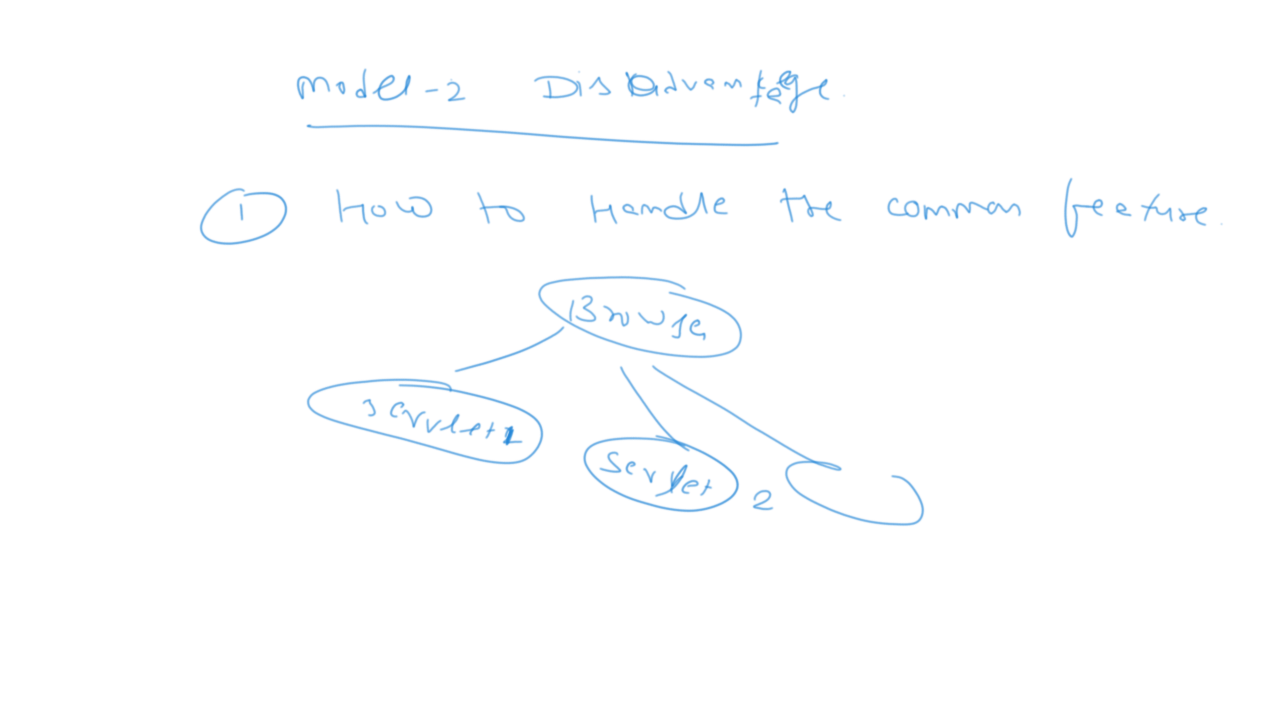 Model-2 Disadvantage.
① How to Handle the common feature.
Browser
Servlet 1
Servlet 2